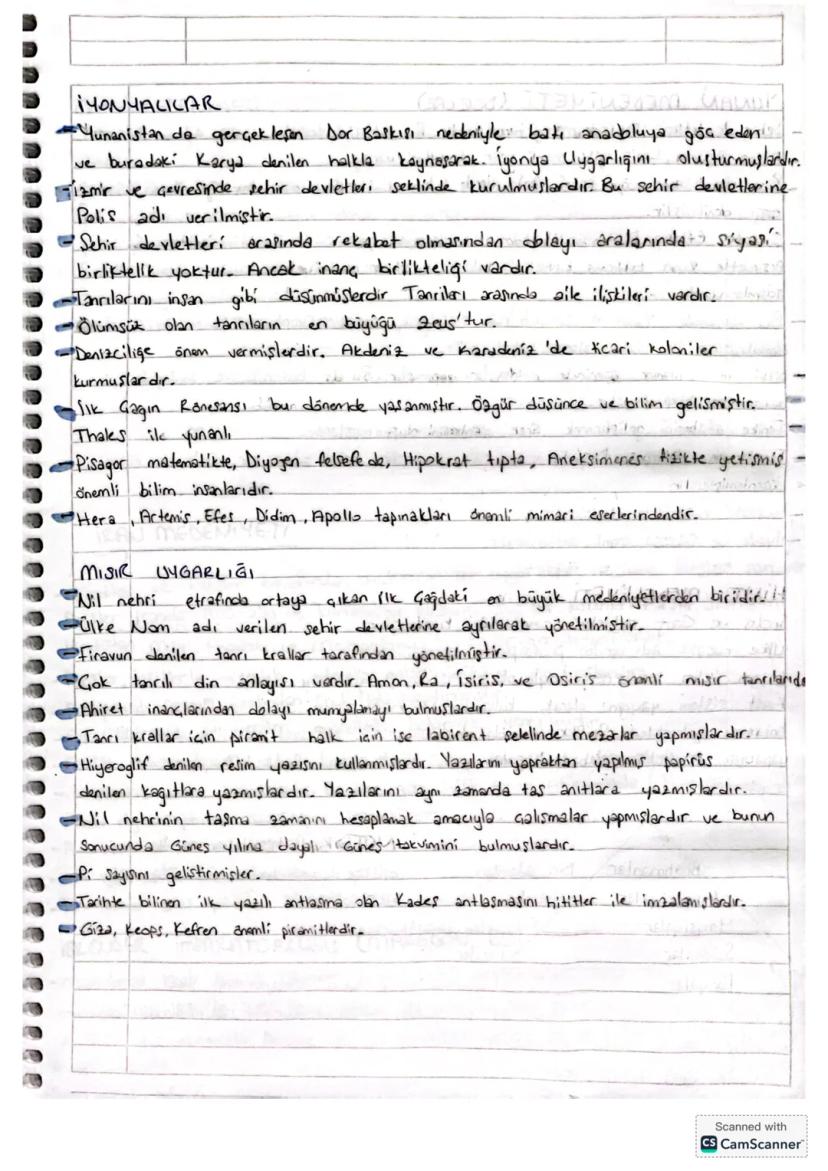 İYONYALILAR
- Yunanistan da gerçekleşen Dor Baskısı nedeniyle batı anadoluya göç eden
ve buradaki Karya denilen halkla kaynaşarak. İyonya Uygarlığını oluşturmuşlardır.
- İzmir ve çevresinde şehir devletleri şeklinde kurulmuşlardır. Bu şehir devletlerine
Polis adı verilmiştir.
- Şehir devletleri arasında rekabet olmasından dolayı aralarında siyasi
birliktelik yoktur. Ancak inanç birlikteliği vardır.
- Tanrılarını insan gibi düşünmüşlerdir Tanrıları arasında aile ilişkileri vardır.
- Ölümsüz olan tanrıların en büyüğü Zeus'tur.
- Denizciliğe önem vermişlerdir. Akdeniz ve Karadeniz 'de ticari koloniler
kurmuşlardır.
- İlk Çağın Rönesansı bu dönemde yaşanmıştır. Özgür düşünce ve bilim gelişmiştir.
Thales ile yunanlı
- Pisagor matematikte, Diyojen felsefede, Hipokrat tıpta, Aneksimenes fizikte yetişmiş
önemli bilim insanlarıdır.
- Hera, Artemis, Efes, Didim, Apollo tapınakları önemli mimari eserlerindendir.
MISIR UYGARLIĞI
- Nil nehri etrafında ortaya çıkan İlk Çağdaki en büyük medeniyetlerden biridir.
- Ülke Nom adı verilen şehir devletlerine ayrılarak yönetilmiştir.
- Firavun denilen tanrı krallar tarafından yönetilmiştir.
- Çok tanrılı din anlayışı vardır. Amon, Ra, İsiris, ve Osiris önemli mısır tanrılarıdı
- Ahiret inançlarından dolayı mumyalamayı bulmuşlardır.
- Tanrı krallar için piramit halk için ise labirent şekelinde mezarlar yapmışlardır.
- Hiyeroglif denilen resim yazısnı kullanmışlardır. Yazılarını yapraktan yapılmış papirüs
denilen kağıtlara yazmışlardır. Yazılarını aynı zamanda taş anıtlara yazmışlardır.
- Nil nehrinin taşma zamanını hesaplamak amacıyla çalışmalar yapmışlardır ve bunun
sonucunda Güneş yılına dayalı Güneş takvimini bulmuşlardır.
- Pi sayısını geliştirmişler.
- Tarihte bilinen ilk yazılı antlaşma olan Kadeş antlaşmasını hititler ile imzalamışlardır.
- Giza, Keops, Kefren önemli piramitlerdir.
Scanned with
CS CamScanner